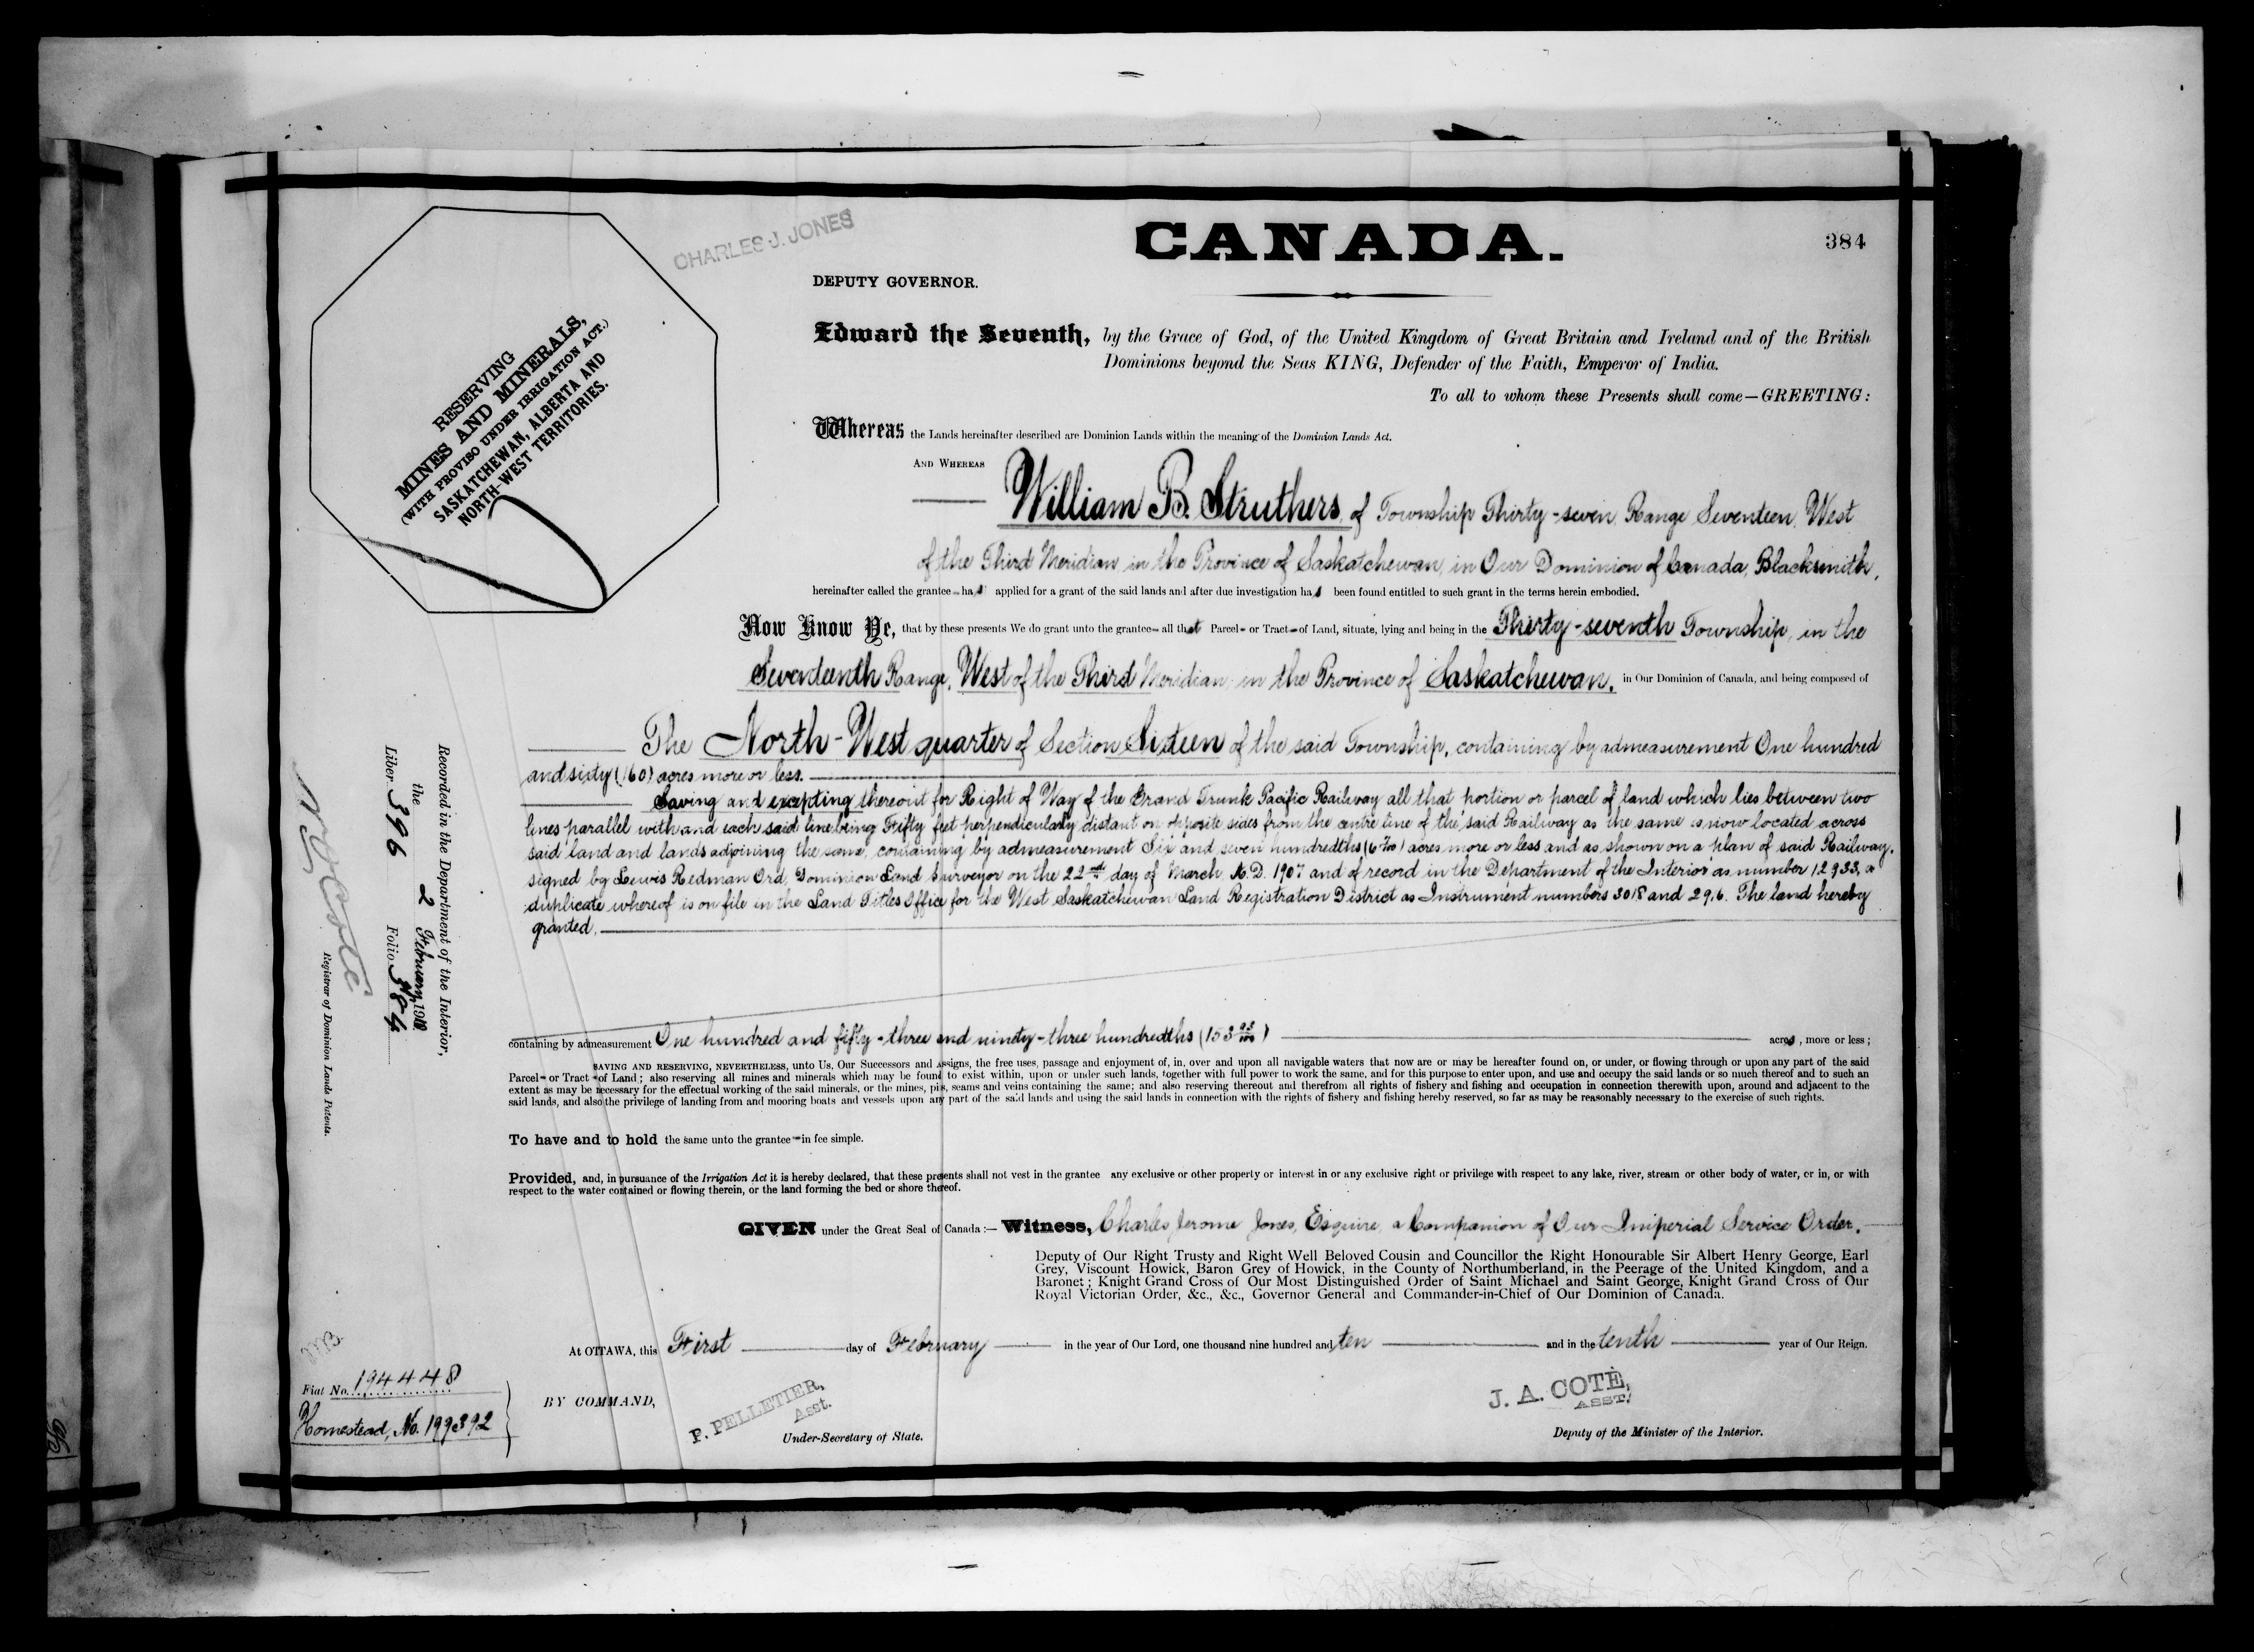 CHARLES J. JONES
CANADA.
384
DEPUTY GOVERNOR.
RESERVING
MINES AND MINERALS,
(WITH PROVISO UNDER IRRIGATION ACT.)
SASKATCHEWAN, ALBERTA AND
NORTH-WEST TERRITORIES.
Edward the Seventh, by the Grace of God, of the United Kingdom of Great Britain and Ireland and of the British
Dominions beyond the Seas KING, Defender of the Faith, Emperor of India.
To all to whom these Presents shall come—GREETING:
Whereas the Lands hereinafter described are Dominion Lands within the meaning of the Dominion Lands Act.
AND WHEREAS
William B. Struthers, of Township Thirty-seven, Range Seventeen, West
of the Third Meridian in the Province of Saskatchewan, in Our Dominion of Canada, Blacksmith,
hereinafter called the grantee has applied for a grant of the said lands and after due investigation has been found entitled to such grant in the terms herein embodied.
Now Know Ye, that by these presents We do grant unto the grantee all that Parcel or Tract of Land, situate, lying and being in the Thirty-seventh Township, in the
Seventeenth Range, West of the Third Meridian, in the Province of Saskatchewan, in Our Dominion of Canada, and being composed of
The North-West quarter of Section Sixteen of the said Township, containing by admeasurement One hundred
and sixty (160) acres more or less.
Saving and excepting thereout for Right of Way of the Grand Trunk Pacific Railway all that portion or parcel of land which lies between two
lines parallel with and each said line being Fifty feet perpendicularly distant on opposite sides from the centre line of the said Railway as the same is now located across
said land and lands adjoining the same, containing by admeasurement Six and seven hundredths (6 7/100) acres more or less and as shown on a plan of said Railway,
signed by Lewis Redman Ord, Dominion Land Surveyor on the 22nd day of March A.D. 1907 and of record in the Department of the Interior as number 12933, a
duplicate whereof is on file in the Land Titles Office for the West Saskatchewan Land Registration District as Instrument numbers 3018 and 296. The land hereby
granted,
containing by admeasurement One hundred and fifty-three and ninety-three hundredths (153 93/100) acres, more or less;
SAVING AND RESERVING, NEVERTHELESS, unto Us, Our Successors and Assigns, the free uses, passage and enjoyment of, in, over and upon all navigable waters that now are or may be hereafter found on, or under, or flowing through or upon any part of the said
Parcel or Tract of Land; also reserving all mines and minerals which may be found to exist within, upon or under such lands, together with full power to work the same, and for this purpose to enter upon, and use and occupy the said lands or so much thereof and to such an
extent as may be necessary for the effectual working of the said minerals, or the mines, pits, seams and veins containing the same; and also reserving thereout and therefrom all rights of fishery and fishing and occupation in connection therewith upon, around and adjacent to the
said lands, and also the privilege of landing from and mooring boats and vessels upon any part of the said lands and using the said lands in connection with the rights of fishery and fishing hereby reserved, so far as may be reasonably necessary to the exercise of such rights.
To have and to hold the same unto the grantee in fee simple.
Provided, and, in pursuance of the Irrigation Act it is hereby declared, that these presents shall not vest in the grantee any exclusive or other property or interest in or any exclusive right or privilege with respect to any lake, river, stream or other body of water, or in, or with
respect to the water contained or flowing therein, or the land forming the bed or shore thereof.
GIVEN under the Great Seal of Canada:— Witness, Charles Jerome Jones, Esquire, a Companion of Our Imperial Service Order,
Deputy of Our Right Trusty and Right Well Beloved Cousin and Councillor the Right Honourable Sir Albert Henry George, Earl
Grey, Viscount Howick, Baron Grey of Howick, in the County of Northumberland, in the Peerage of the United Kingdom, and a
Baronet; Knight Grand Cross of Our Most Distinguished Order of Saint Michael and Saint George, Knight Grand Cross of Our
Royal Victorian Order, &c., &c., Governor General and Commander-in-Chief of Our Dominion of Canada.
At OTTAWA, this First day of February in the year of Our Lord, one thousand nine hundred and ten and in the tenth year of Our Reign.
BY COMMAND,
P. PELLETIER,
Asst.
Under-Secretary of State.
J. A. COTÉ,
ASST.
Deputy of the Minister of the Interior.
Recorded in the Department of the Interior,
the 2 February, 1910
Liber 396 Folio 384
N. O. Coté
Registrar of Dominion Lands Patents.
Fiat No. 194448
Homestead, No. 199392